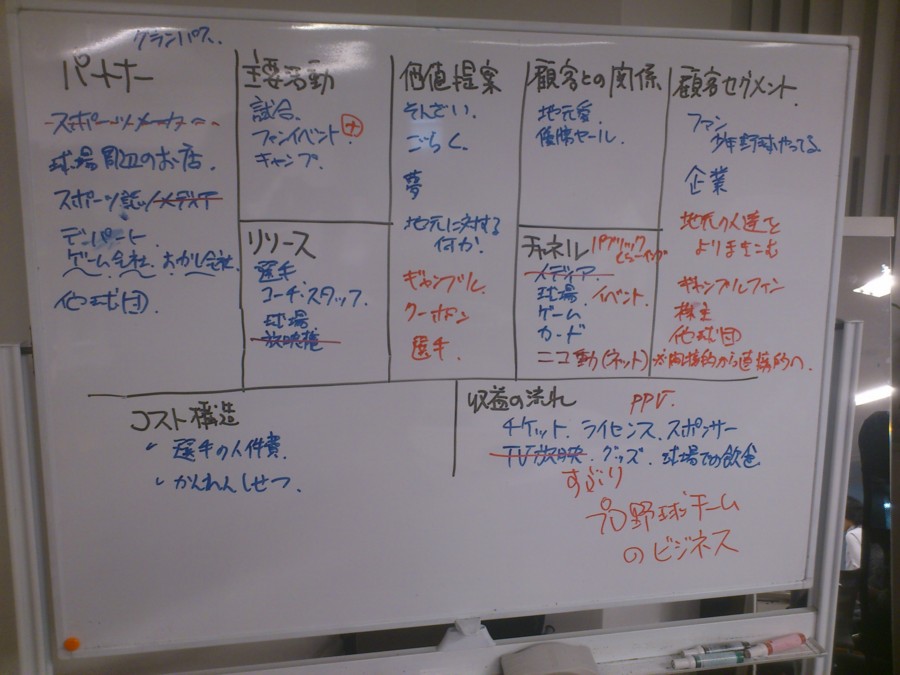 グランパス.
パートナー
スポーツメーカー
球場周辺のお店
スポーツ誌、メディア
デパート
ゲーム会社. おかし会社.
他球団
主要活動
試合
ファンイベント +
キャンプ
リソース
選手
コーチ・スタッフ.
球場
放映権
価値提案
そんざい.
ごらく.
夢
地元に対する
何か.
ギャンブル.
クーポン
選手.
顧客との関係
地元愛
優勝セール
チャネル
パブリック
ビューイング
メディア
球場. イベント.
ゲーム
カード
ニコ動(ネット)
間接的から直接的へ.
顧客セグメント.
ファン
少年野球やってる
企業
地元の人達を
よりまきこむ
ギャンブルファン
株主
他球団
コスト構造
選手の人件費.
かんれんしせつ.
収益の流れ
PPV.
チケット. ライセンス. スポンサー
TV放映. グッズ. 球場での飲食
すぶり
プロ野球チーム
のビジネス